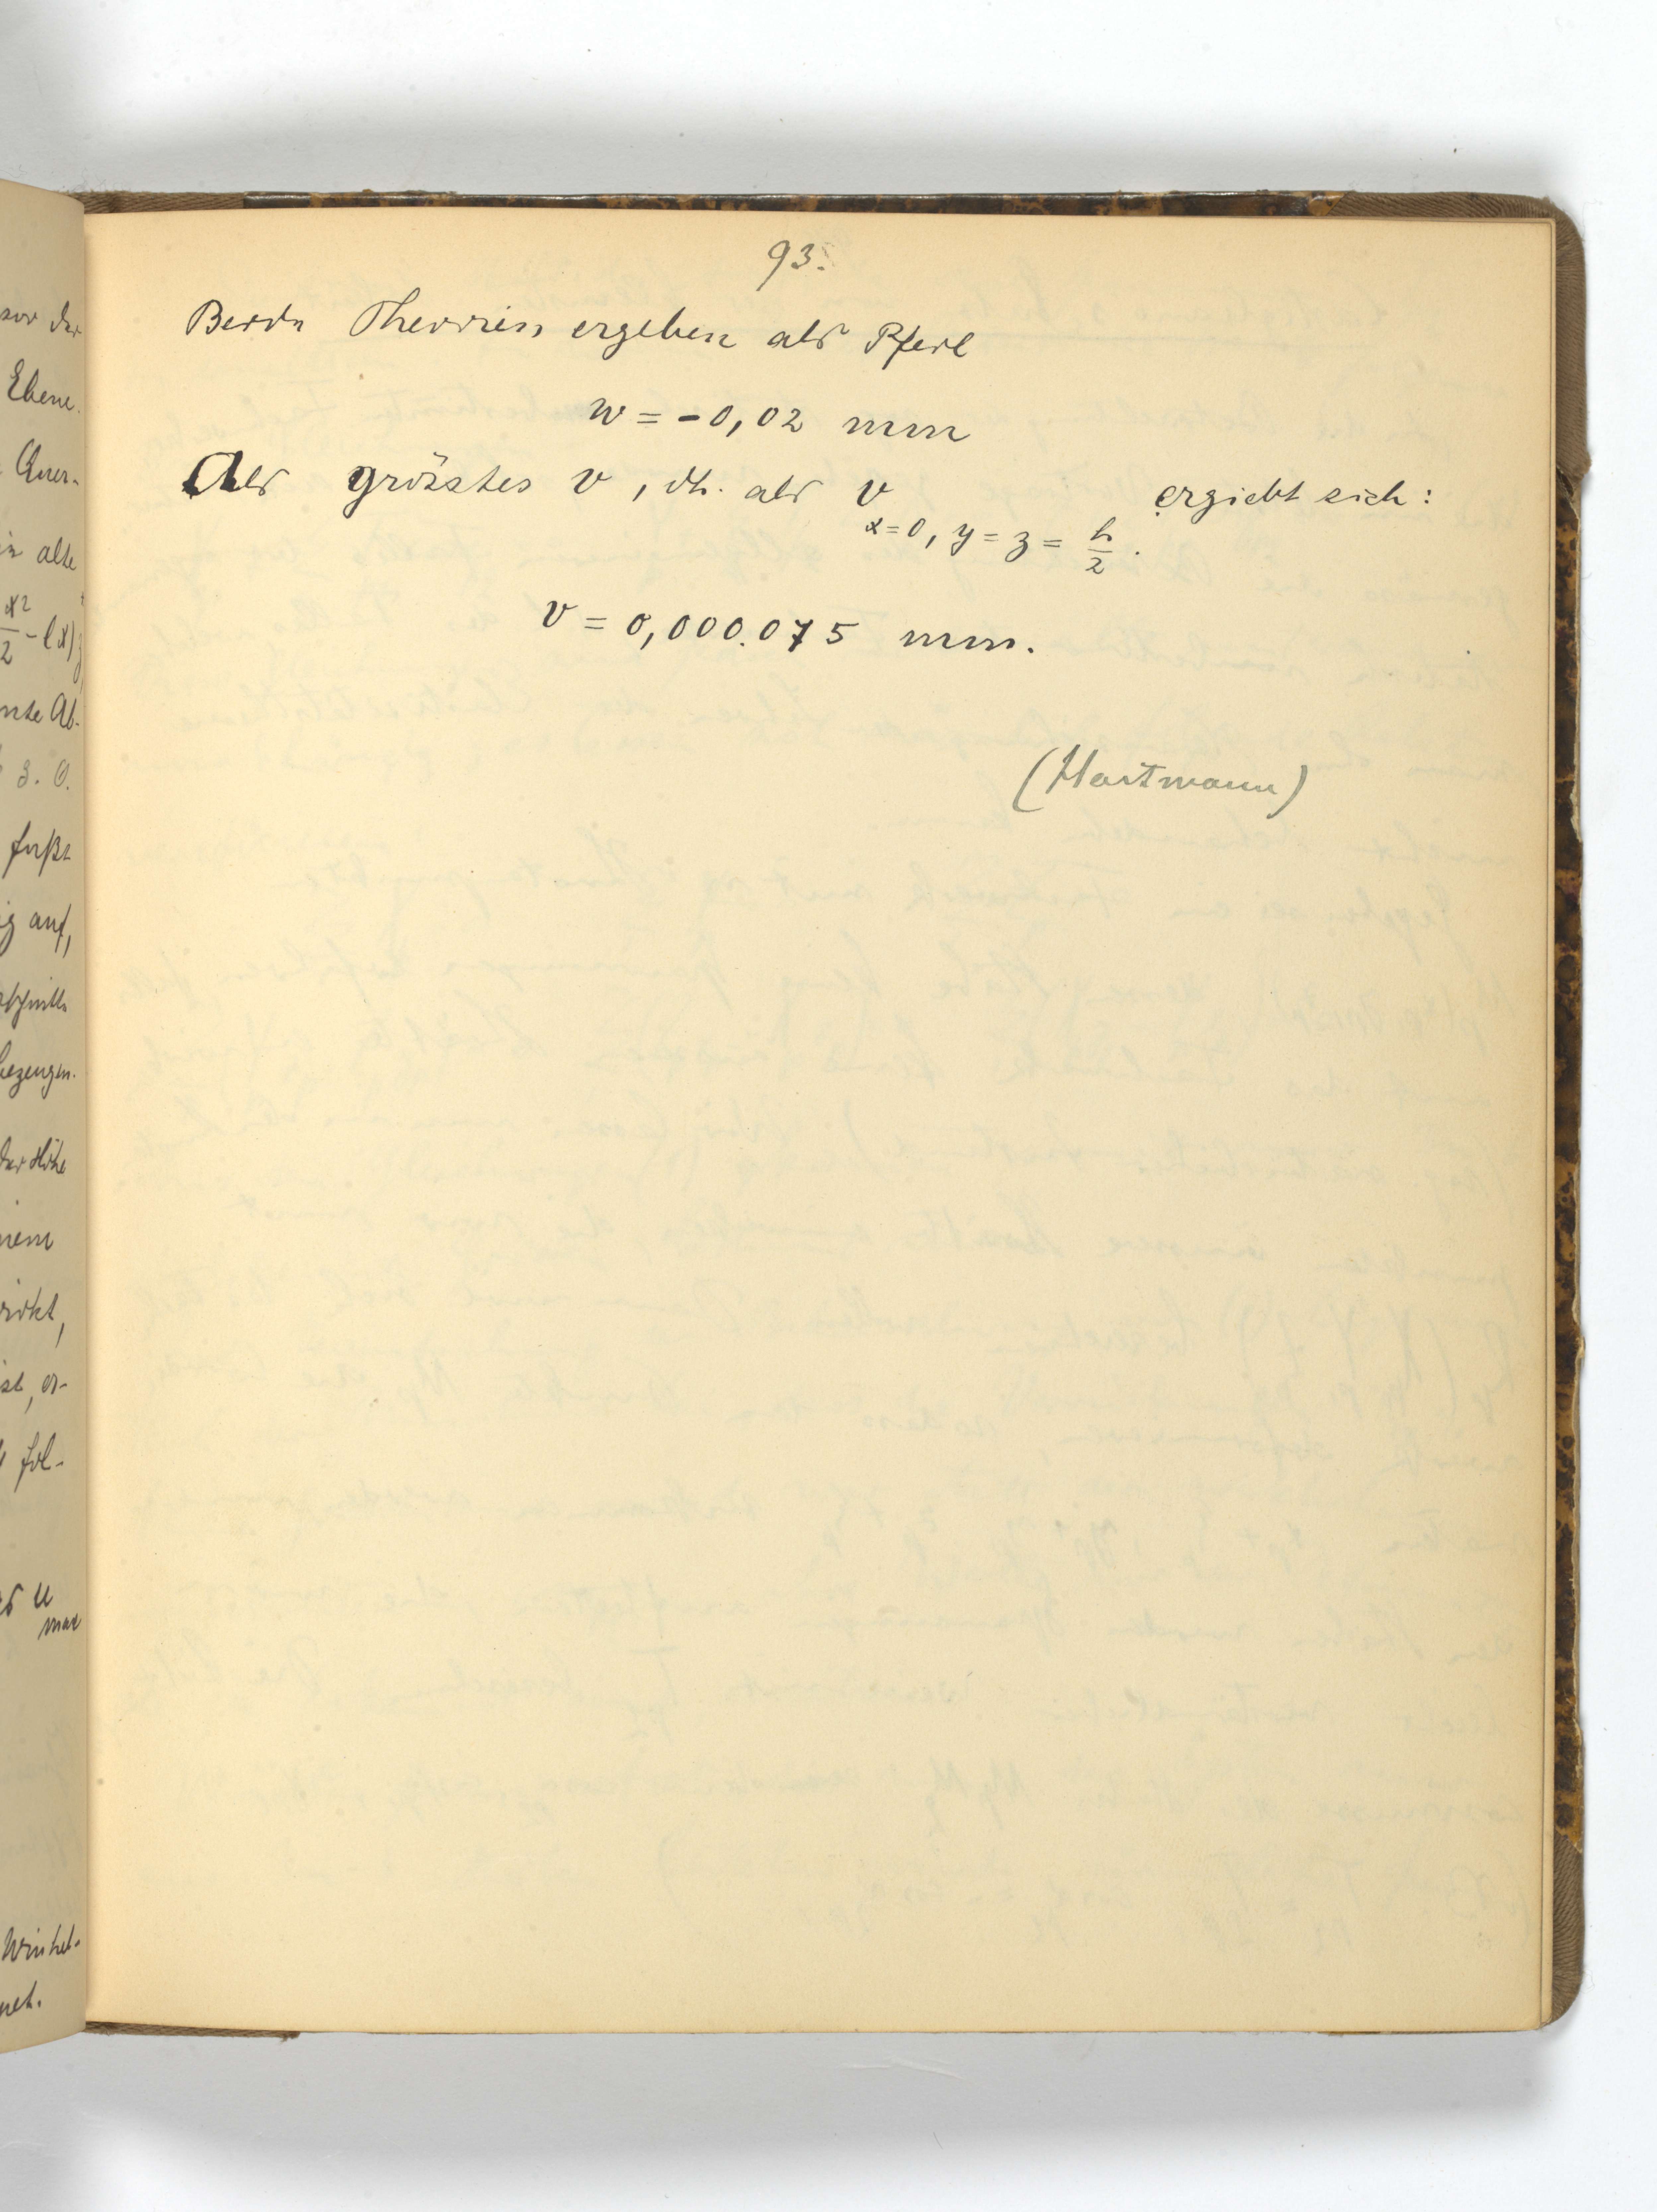 93.
Beide Theorien ergeben als Pfeil
w = -0,02 mm
Als grösstes v, dh. als v x=0, y=z=h/2. ergiebt sich:
v = 0,000.075 mm.
(Hartmann)
vor der
Ebene.
Quer-
alte
x²/2 - lx)
nte Ab-
3. O.
fußt
ig auf,
bezeugen.
der Höhe
nem
wirkt,
ist, er-
fol-
u max
Winkel-
net.